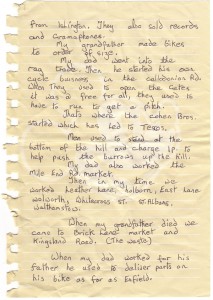 from Islington. They also sold records
and Gramophones.
My grandfather made bikes
to order of size.
My dad went into the
rag trade. Then he started his own
cycle business in the Caledonian Rd.
When they used to open the Gates
it was a free for all, they used to
have to run to get a pitch.
Thats where the Cohen Bros.
started which has led to Tescos.
Men used to stand at the
bottom of the hill and charge 1p to
help push the barrows up the hill.
My dad also worked the
Mile End Rd. market.
Then in my time we
worked Leather Lane, Holborn, East Lane
Walworth, Whitecross St. St. Albans,
Walthamstow.
When my grandfather died we
came to Brick Lane market and
Kingsland Road. (The Waste)
When my dad worked for his
father he used to deliver parts on
his bike as far as Enfield.